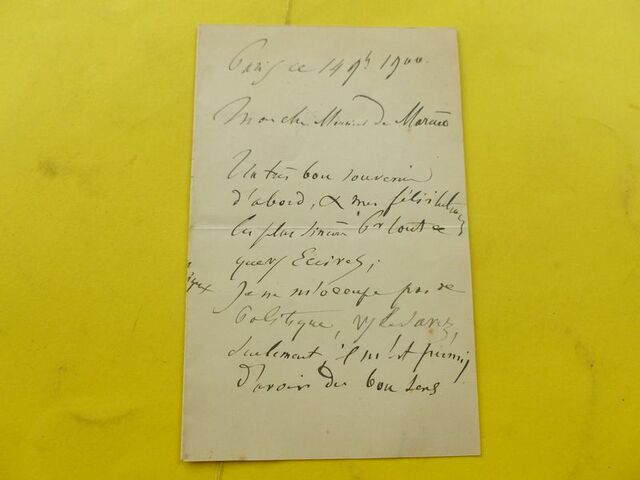 Paris ce 14 9h 1900.
Mon cher Monsieur de
Un très bon souvenir
d'abord, & mes félicitations
les plus sincères pr tout ce
que vs Ecrivez;
Je ne m'occupe pas de
Politique, vs le savez,
seulement, il m'est permis
d'avoir du bon sens